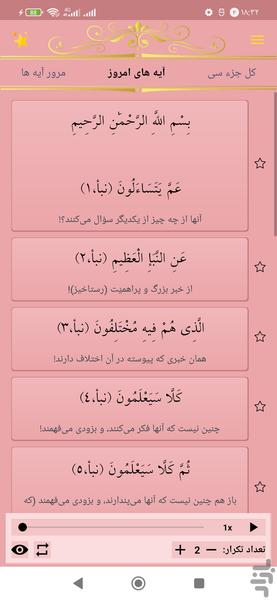 ۱۸:۳۲
کل جزء سی
آیه های امروز
مرور آیه ها
بِسْمِ اللَّهِ الرَّحْمَٰنِ الرَّحِيمِ
عَمَّ يَتَسَاءَلُونَ (نبأ،۱)
آنها از چه چیز از یکدیگر سؤال می‌کنند؟!
عَنِ النَّبَإِ الْعَظِيمِ (نبأ،۲)
از خبر بزرگ و پراهمیّت (رستاخیز)!
الَّذِي هُمْ فِيهِ مُخْتَلِفُونَ (نبأ،۳)
همان خبری که پیوسته در آن اختلاف دارند!
كَلَّا سَيَعْلَمُونَ (نبأ،٤)
چنین نیست که آنها فکر می‌کنند، و بزودی می‌فهمند!
ثُمَّ كَلَّا سَيَعْلَمُونَ (نبأ،٥)
باز هم چنین نیست که آنها می‌پندارند، و بزودی می‌فهمند (که
1x
تعداد تکرار: − 2 +
بازار